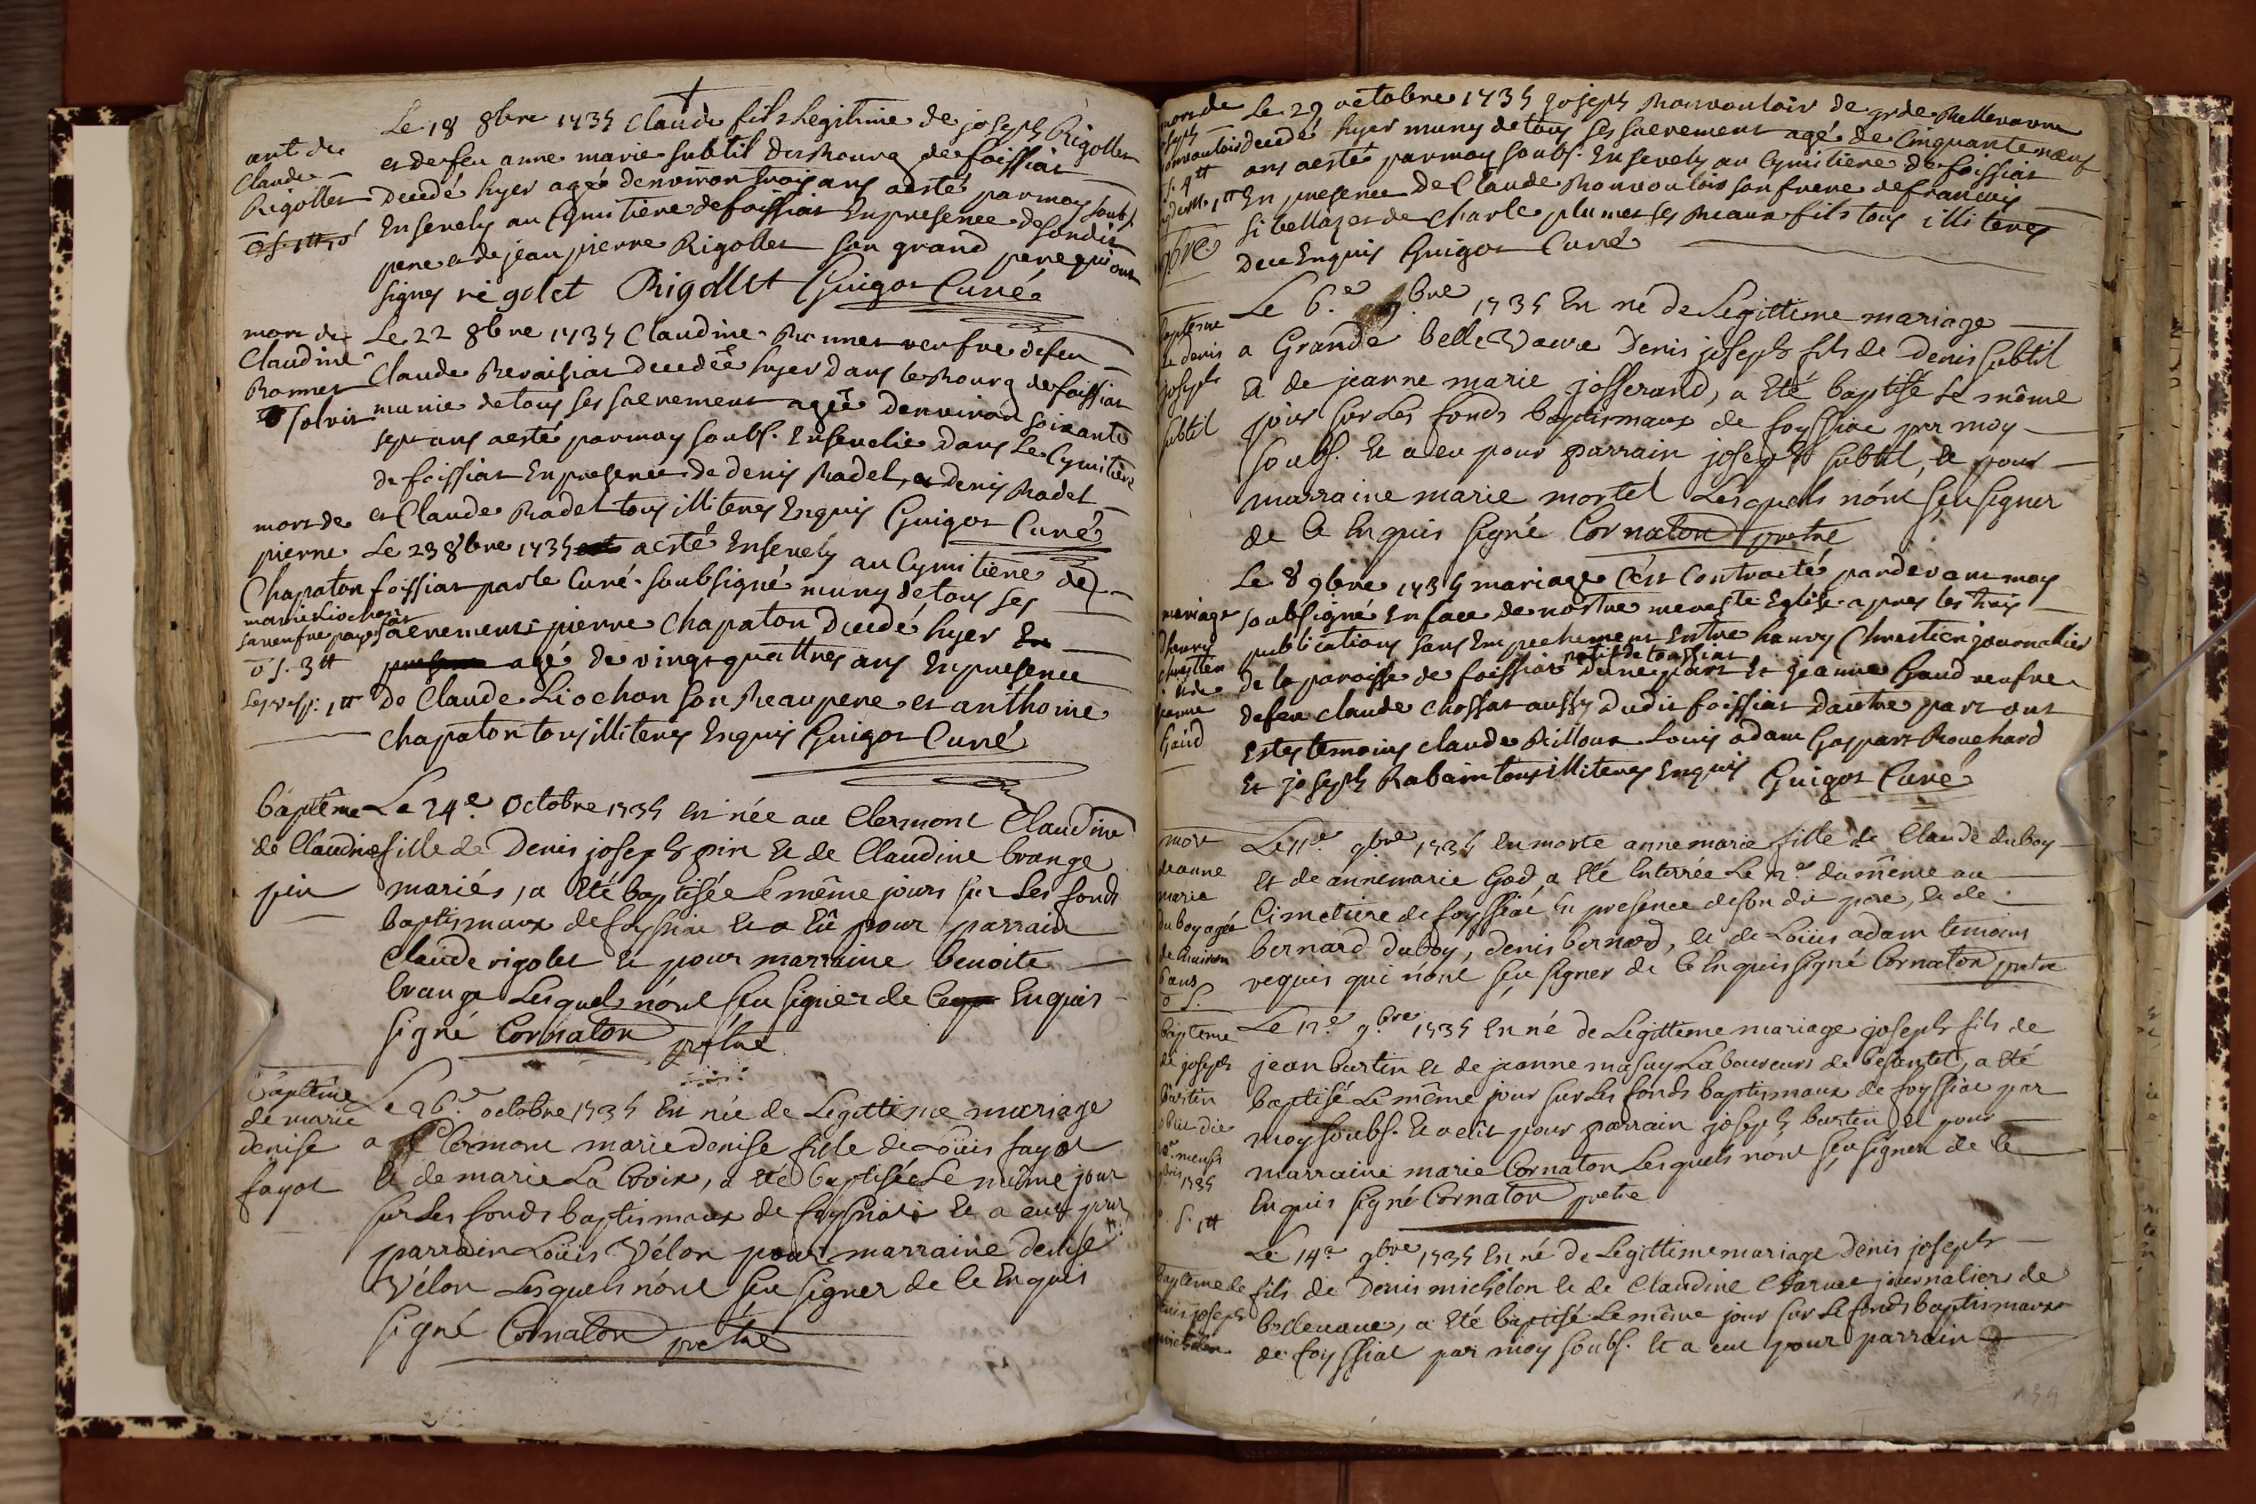 Le 18 8bre 1735 Claude fils Legitime de joseph Rigollet
et de feu anne marie subtil du bourg de foissiat
decedé hyer agé denviron trois ans aesté par moy soubs.
Ensevely au Cymitiere de foissiat En presence de son dit
pere et de jean pierre Rigollet son grand pere qui ont
signes rigolet Rigollet Guigot Curé
mort de
Claude
Rigollet
Le 22 8bre 1735 Claudine Bonnet veufve de feu
Claude Revaissiat decedée hyer dans le bourg de foissiat
munie de tous ses sacrement agée denviron soixante
sept ans aesté par moy soubs. Ensevelie dans Le Cymitière
de foissiat En presence de denis Radel, et denis Radel
et Claude Radel tous illiteres Enquis Guigot Curé
mort de
Claudine
Bonnet
Le 23 8bre 1735 aesté Ensevely au Cymitiere de
foissiat par le Curé soubsigné muny de tous ses
sacrement pierre Chapaton decedé hyer
agé de vingt quattres ans En presence
de Claude Liochon son Beaupere et anthoine
chapaton tous illiteres Enquis Guigot Curé
mort de
pierre
Chapaton
marie Liochon
sa veufve paye
o s. 3tt
Le 24e. Octobre 1735 Est née au Clermont Claudine
fille de Denis joseph pin et de Claudine brange
mariés, a Eté baptisée Le même jours sur Les fonds
baptismaux de foyssia et a Eû pour parrain
Claude rigolet et pour marraine benoite
brange Lesquels n'ont sçu signier de ce Enquis
signé Cornaton prêtre
baptême
de Claudine
pin
Le 26.e octobre 1735 Est née de Legittime mariage
a Clermont marie denise fille de Loüis fayot
et de marie La Croix, a eté baptisée Le même jour
sur Les fonds baptismaux de foyssiat et a eut pour
parrain Loüis Vélon pour marraine denise
Vélon Lesquels n'ont sçu signer de ce Enquis
signé Cornaton prêtre
baptême
de marie
denise
fayot
Le 29 octobre 1735 joseph Monvouloir de grde Bellevavre
decedé hyer muny de tous ses sacrement agé de Cinquante neuf
ans aesté par moy soubs. Ensevely au Cymitiere de foissiat
En presence de Claude Monvoulois son frere de francois
Sibellaz et de Charle plumet ses Beaux fils tous illiteres
dece Enquis Guigot Curé
mort de
joseph
Le 6.e 9.bre 1735 Est né de Legittime mariage
a Grande bellevavre Denis joseph fils de Denis subtil
et de jeanne marie josserand, a Eté baptisé Le même
jour sur Les fonds baptismaux de foyssiat par moy
soubs. Et a eu pour parrain joseph subtil, et pour
marraine marie mortel Lesquels n'ont sçu signer
de ce Enquis signé Cornaton pretre
baptême
de denis
joseph
subtil
Le 8 9bre 1735 mariage C'est Contracté pardevant moy
soubsigné En face de nostre mere ste Eglise apres les trois
publications sans Empechement Entre hanry Chrestien journallier
de la paroisse de foissiat natif de toussiat d'une part Et jeanne Gaud veufve
defeu claude chossat aussy dudit foissiat dautre part ont
Estes temoins claude Billoux Louis adam Gaspart Bouchard
Et joseph Rabain tous illiteres Enquis Guigot Curé
mariage
dhanry
Chrestien
et de
jeanne
Gaud
Le 11.e 9.bre 1735 Est morte anne marie fille de Claude duboy
Et de annemarie God, a Eté Enterrée Le 12e du même au
Cimetiere de foyssiat En presence de son dit pere, et de
bernard duboy, denis bernard, et de Loüis adam temoins
requis qui n'ont sçu signer de ce Enquis signé Cornaton pretre
mort
de anne
marie
duboy agée
de Environ
6 ans
Le 12.e 9.bre 1735 Est né de Legittime mariage joseph fils de
jean burtin et de jeanne masuy Laboureurs de besantet, a eté
baptisé Le même jour sur Les fonds baptismaux de foyssiat par
moy soubs. Et a eut pour parrain joseph burtin et pour
marraine marie Cornaton Lesquels n'ont sçu signer de ce
Enquis signé Cornaton pretre
baptême
de joseph
burtin
obiit die
mensis
9bris 1735
Le 14.e 9.bre 1735 Est né de Legittime mariage Denis joseph
fils de Denis michelon et de Claudine Charvet journaliers de
bellevavre, a Eté baptisé Le même jour sur Le fonds baptismaux
de foyssiat par moy soubs. Et a eut pour parrain
baptême de
denis joseph
michelon